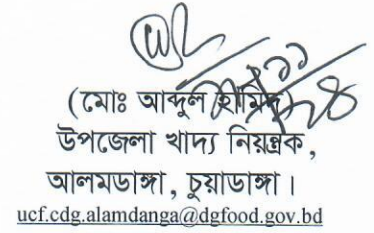 (মোঃ আব্দুল হামিদ)
উপজেলা খাদ্য নিয়ন্ত্রক,
আলমডাঙ্গা, চুয়াডাঙ্গা।
ucf.cdg.alamdanga@dgfood.gov.bd